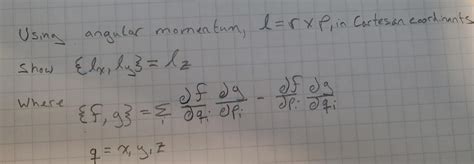 Using angular momentum, l = r x p, in Cartesian coordinants
show {lx, ly} = lz
where {f, g} = Σi ∂f/∂qi ∂g/∂pi - ∂f/∂pi ∂g/∂qi
q = x, y, z